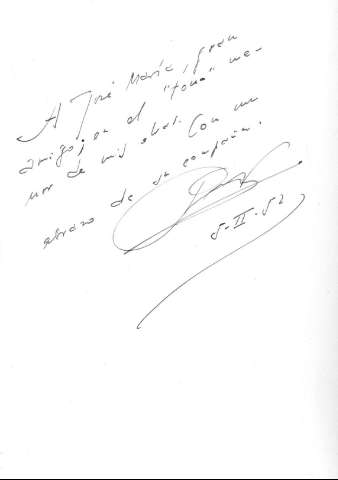 A José María, gran
amigo, con el "tono" me-
nor de mis obras. Con un
abrazo de su compañero.
5-II-52